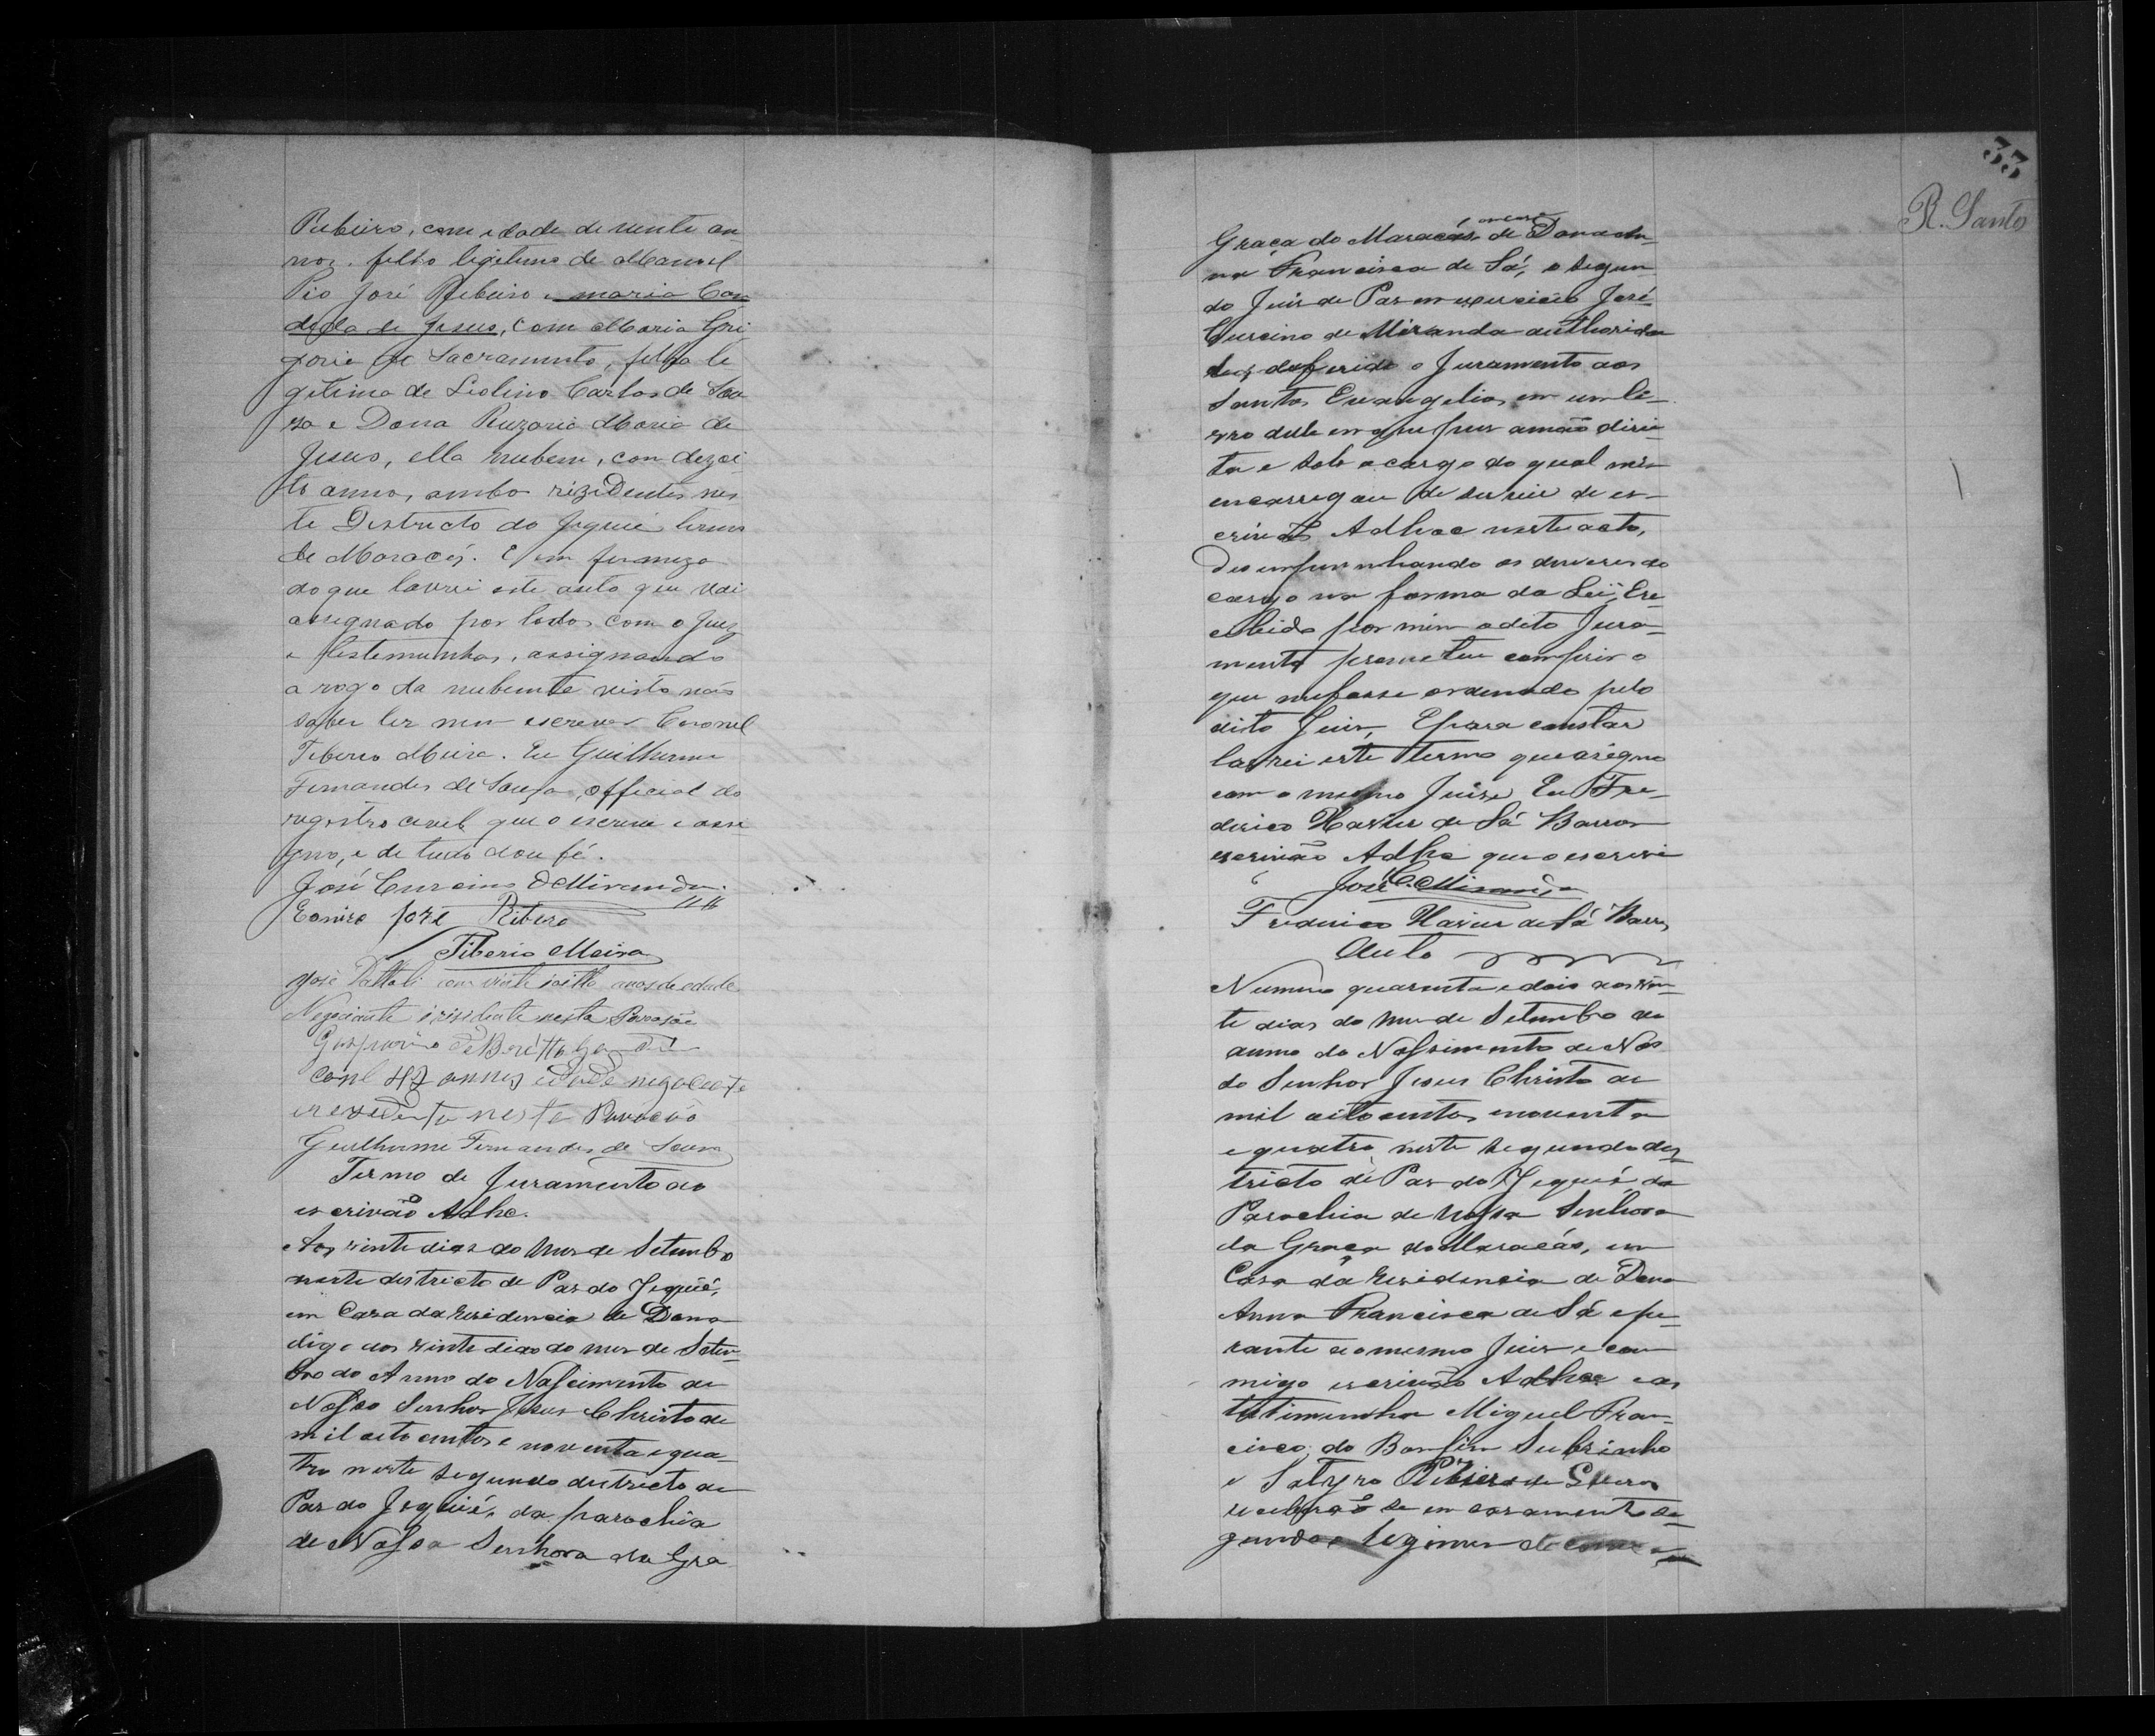 Ribeiro, com edade de vinte an
nos, filho legitimo de Manoel
Pio José Ribeiro e maria Can
dida de Jesus, com Maria Gri
goria de Sacramento, filha le
gitima de Liolino Carlos de Sou
sa e Dona Ruzaria Maria de
Jesus, ella nubem, com dezoi
to anno, ambos rezidentes nes
te Destricto do Jequié termo
de Maracás. E em firmeza
do que lavrei este auto que vai
assegnado por todos com o Juiz
e testemunhas, assignando
a rogo da nubente visto não
saber ler nem escrever Coronel
Tiberio Meira. Eu Guilherme
Fernandes de Souza, official do
registro civel que o escrevi e assi
gno, e de tudo dou fé.
José Curcino d Miranda.
José Ribero
Tiberio Meira
José com vinte oitto anos de edade
Negociante i risidente nesta Povoasão
com 42 annos edade negociante
e residente nesta Povoação
Guilherme Fernandes de Souza
Termo de Juramento ao
escrivão Adhc.
Aos vinte dias do mes de Setembro
neste destricto de Pas do Jequié,
em Casa da residencia de Dona
digo aos vinte dias do mes de Setem-
bro do Anno do Nascimento de
Nosso Senhor Jesus Christo de
mil oito centos e noventa e qua
tro neste segundo destricto de
Pas do Jequié, da parochia
de Nossa Senhora da Gra
33
R. Santos
Graça do Maracás, de Dona An-
na Francisca de Sá, o segun
do Juis de Pas em exercicio José
Curcino de Miranda authorida
des deferido o Juramento aos
Santos Evangelios em um li-
vro delle em que pus a mão direi-
ta e sob o cargo do qual me
encarregou de servir de es-
crivão Adhoc neste acto,
desempenhando os deveres do
cargo na forma da Lei; E re-
cebido por mim o dito Jura-
mento prometeu comprir o
que me fosse ordenado pelo
dito Juis, E para constar
lavrei este termo que asigno
com o mesmo Juis, Eu Fre-
derico Xavier de Sá Barros
escrivão Adhc que o escrevi
José C. Miranda
Frederico Xavier de Sá Barros
Auto
Numero quarenta e dois aos vin-
te dias do mes de Setembro do
anno do Nascimento de Nos
so Senhor Jesus Christo de
mil oito centos e noventa
e quatro, neste segundo des
tricto de Pas do Jequié da
Parochia de Nossa Senhora
da Graça do Maracás, em
Casa da residencia de Dona
Anna Francisca de Sá e pe-
rante ao mesmo Juis e com
migo escrivão Adhoc e as
testimunha Miguel Fran-
cisco do Bomfim Subrinho
e Satyro Ribeiro de
receberão se em casamento se-
gundo o regimen de